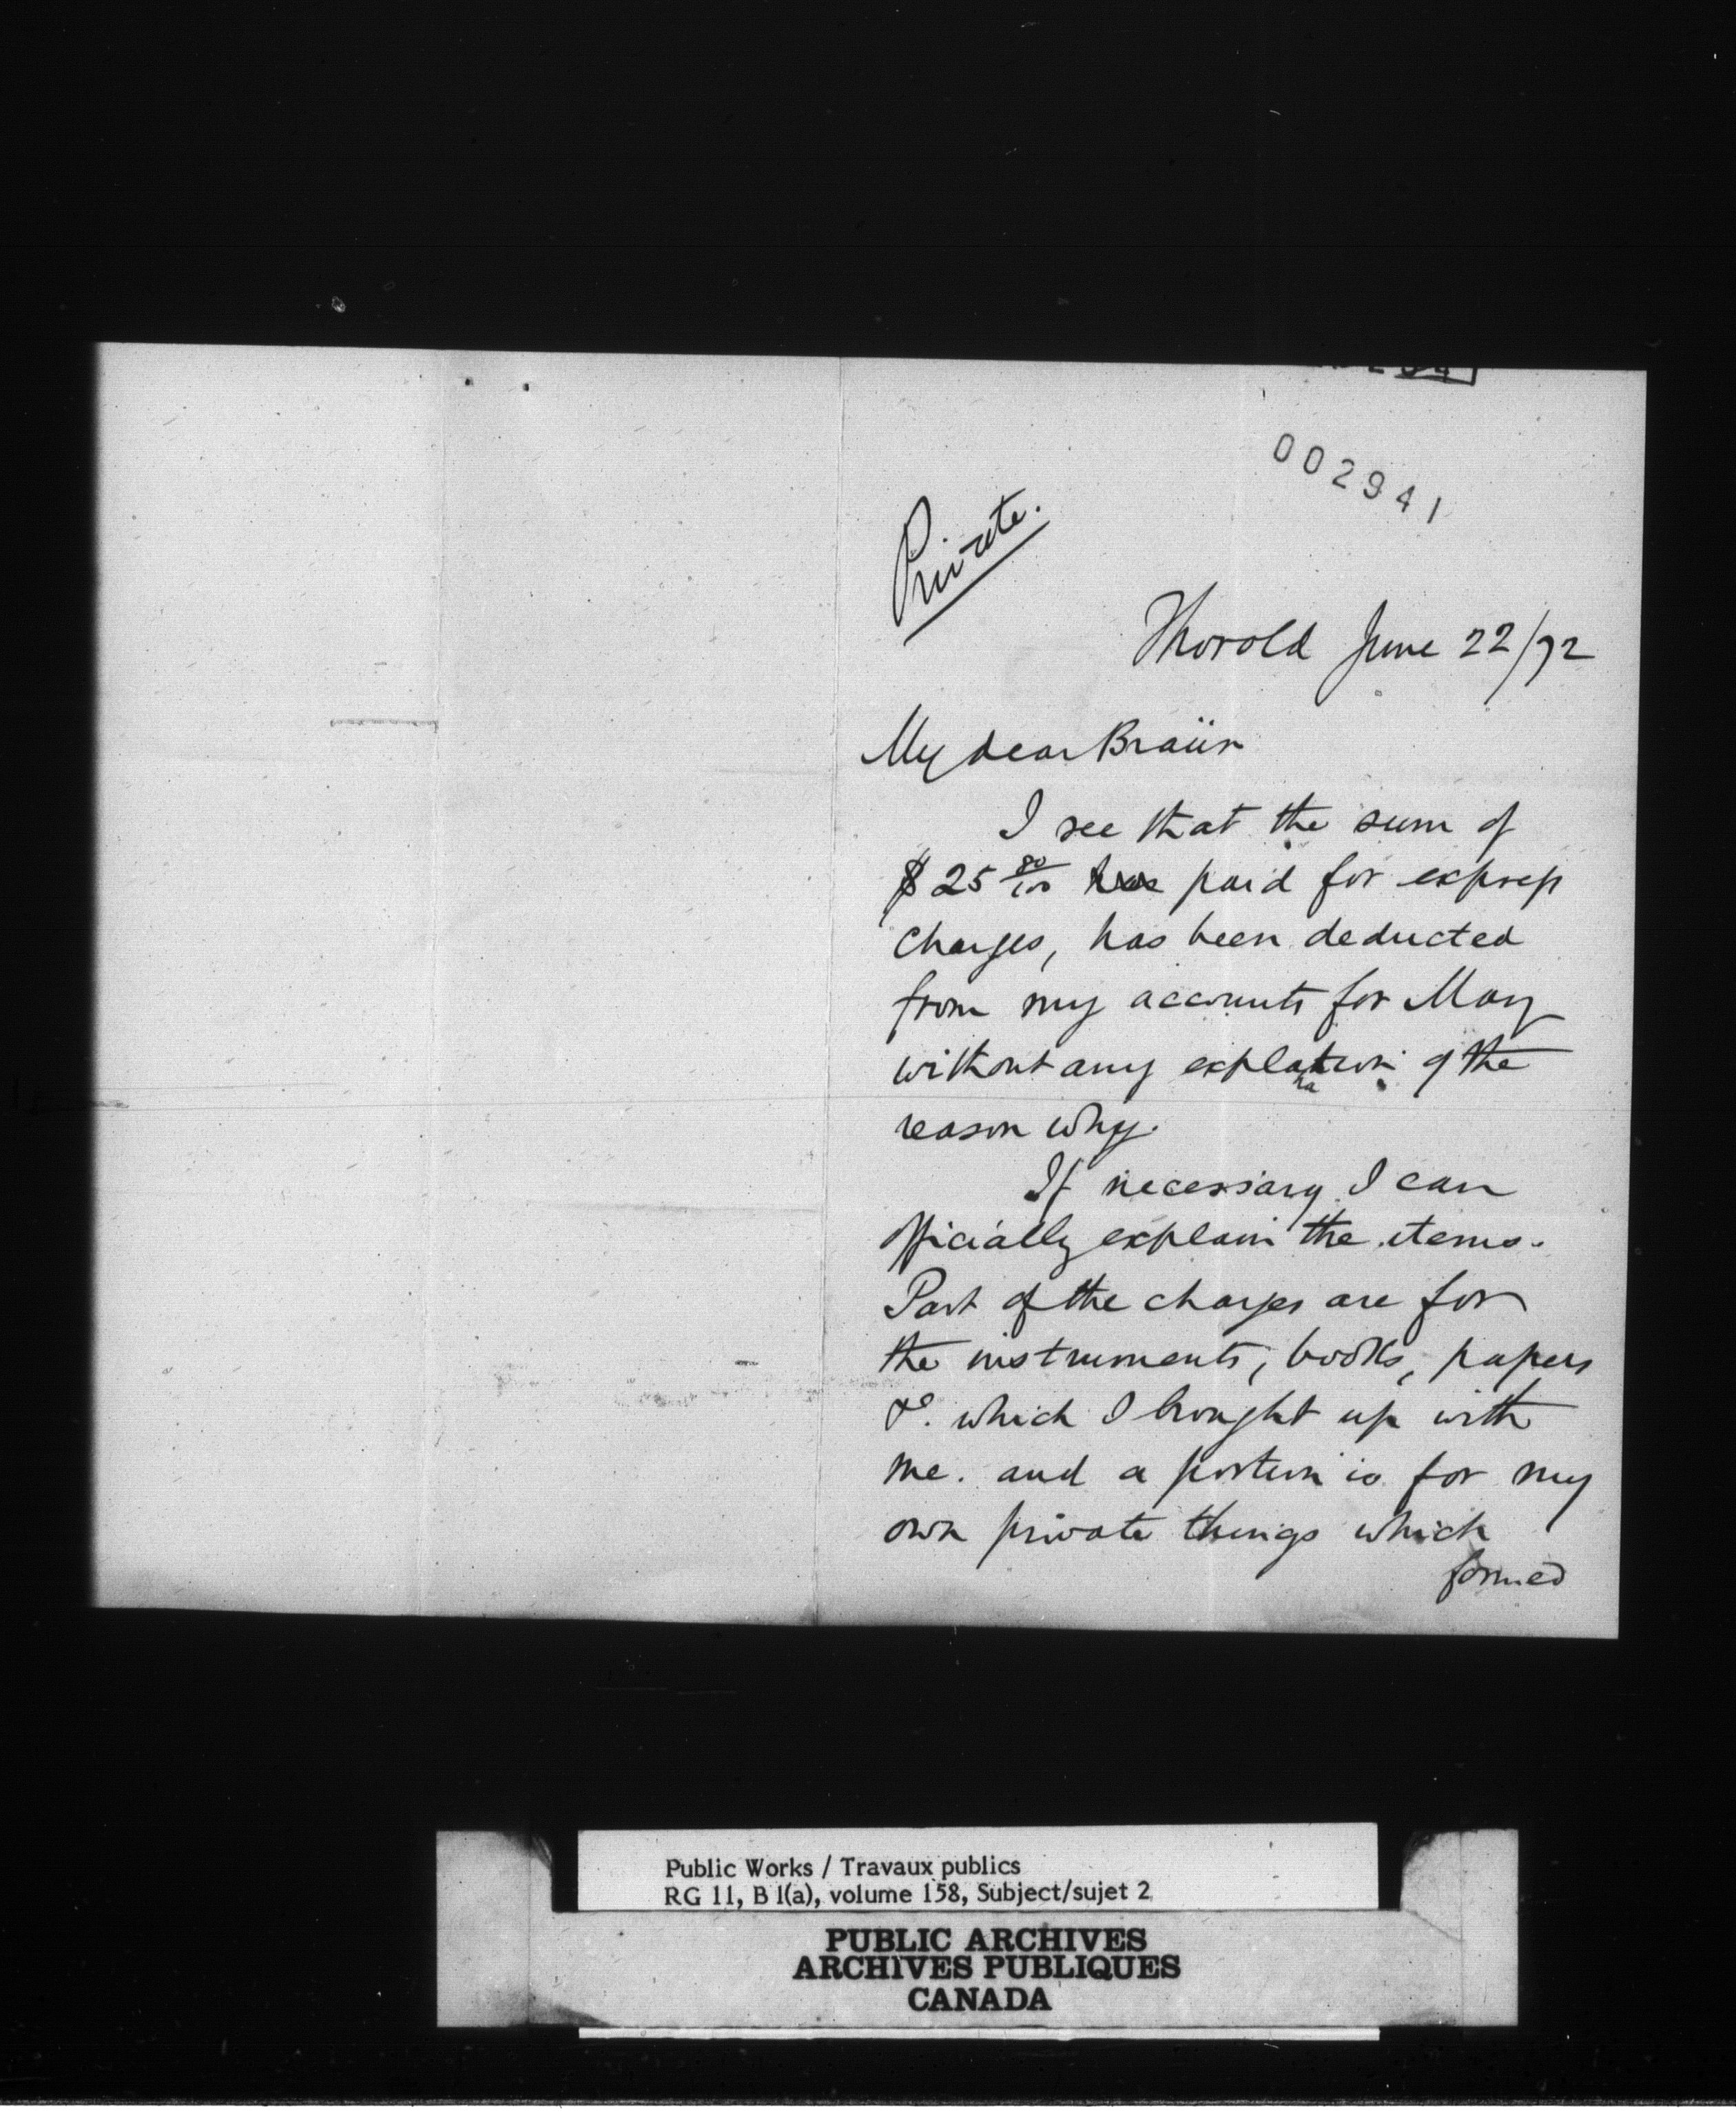 002941
Private.
Thorold June 22/72
My dear Braün
I see that the sum of
$25 80/100 paid for express
charges, has been deducted
from my accounts for May
without any explanation of the
reason why.
If necessary I can
officially explain the items.
Part of the charges are for
the instruments, books, papers
&c. which I brought up with
me. and a portion is for my
own private things which
formed
Public Works / Travaux publics
RG 11, B 1(a), volume 158, Subject/sujet 2
PUBLIC ARCHIVES
ARCHIVES PUBLIQUES
CANADA